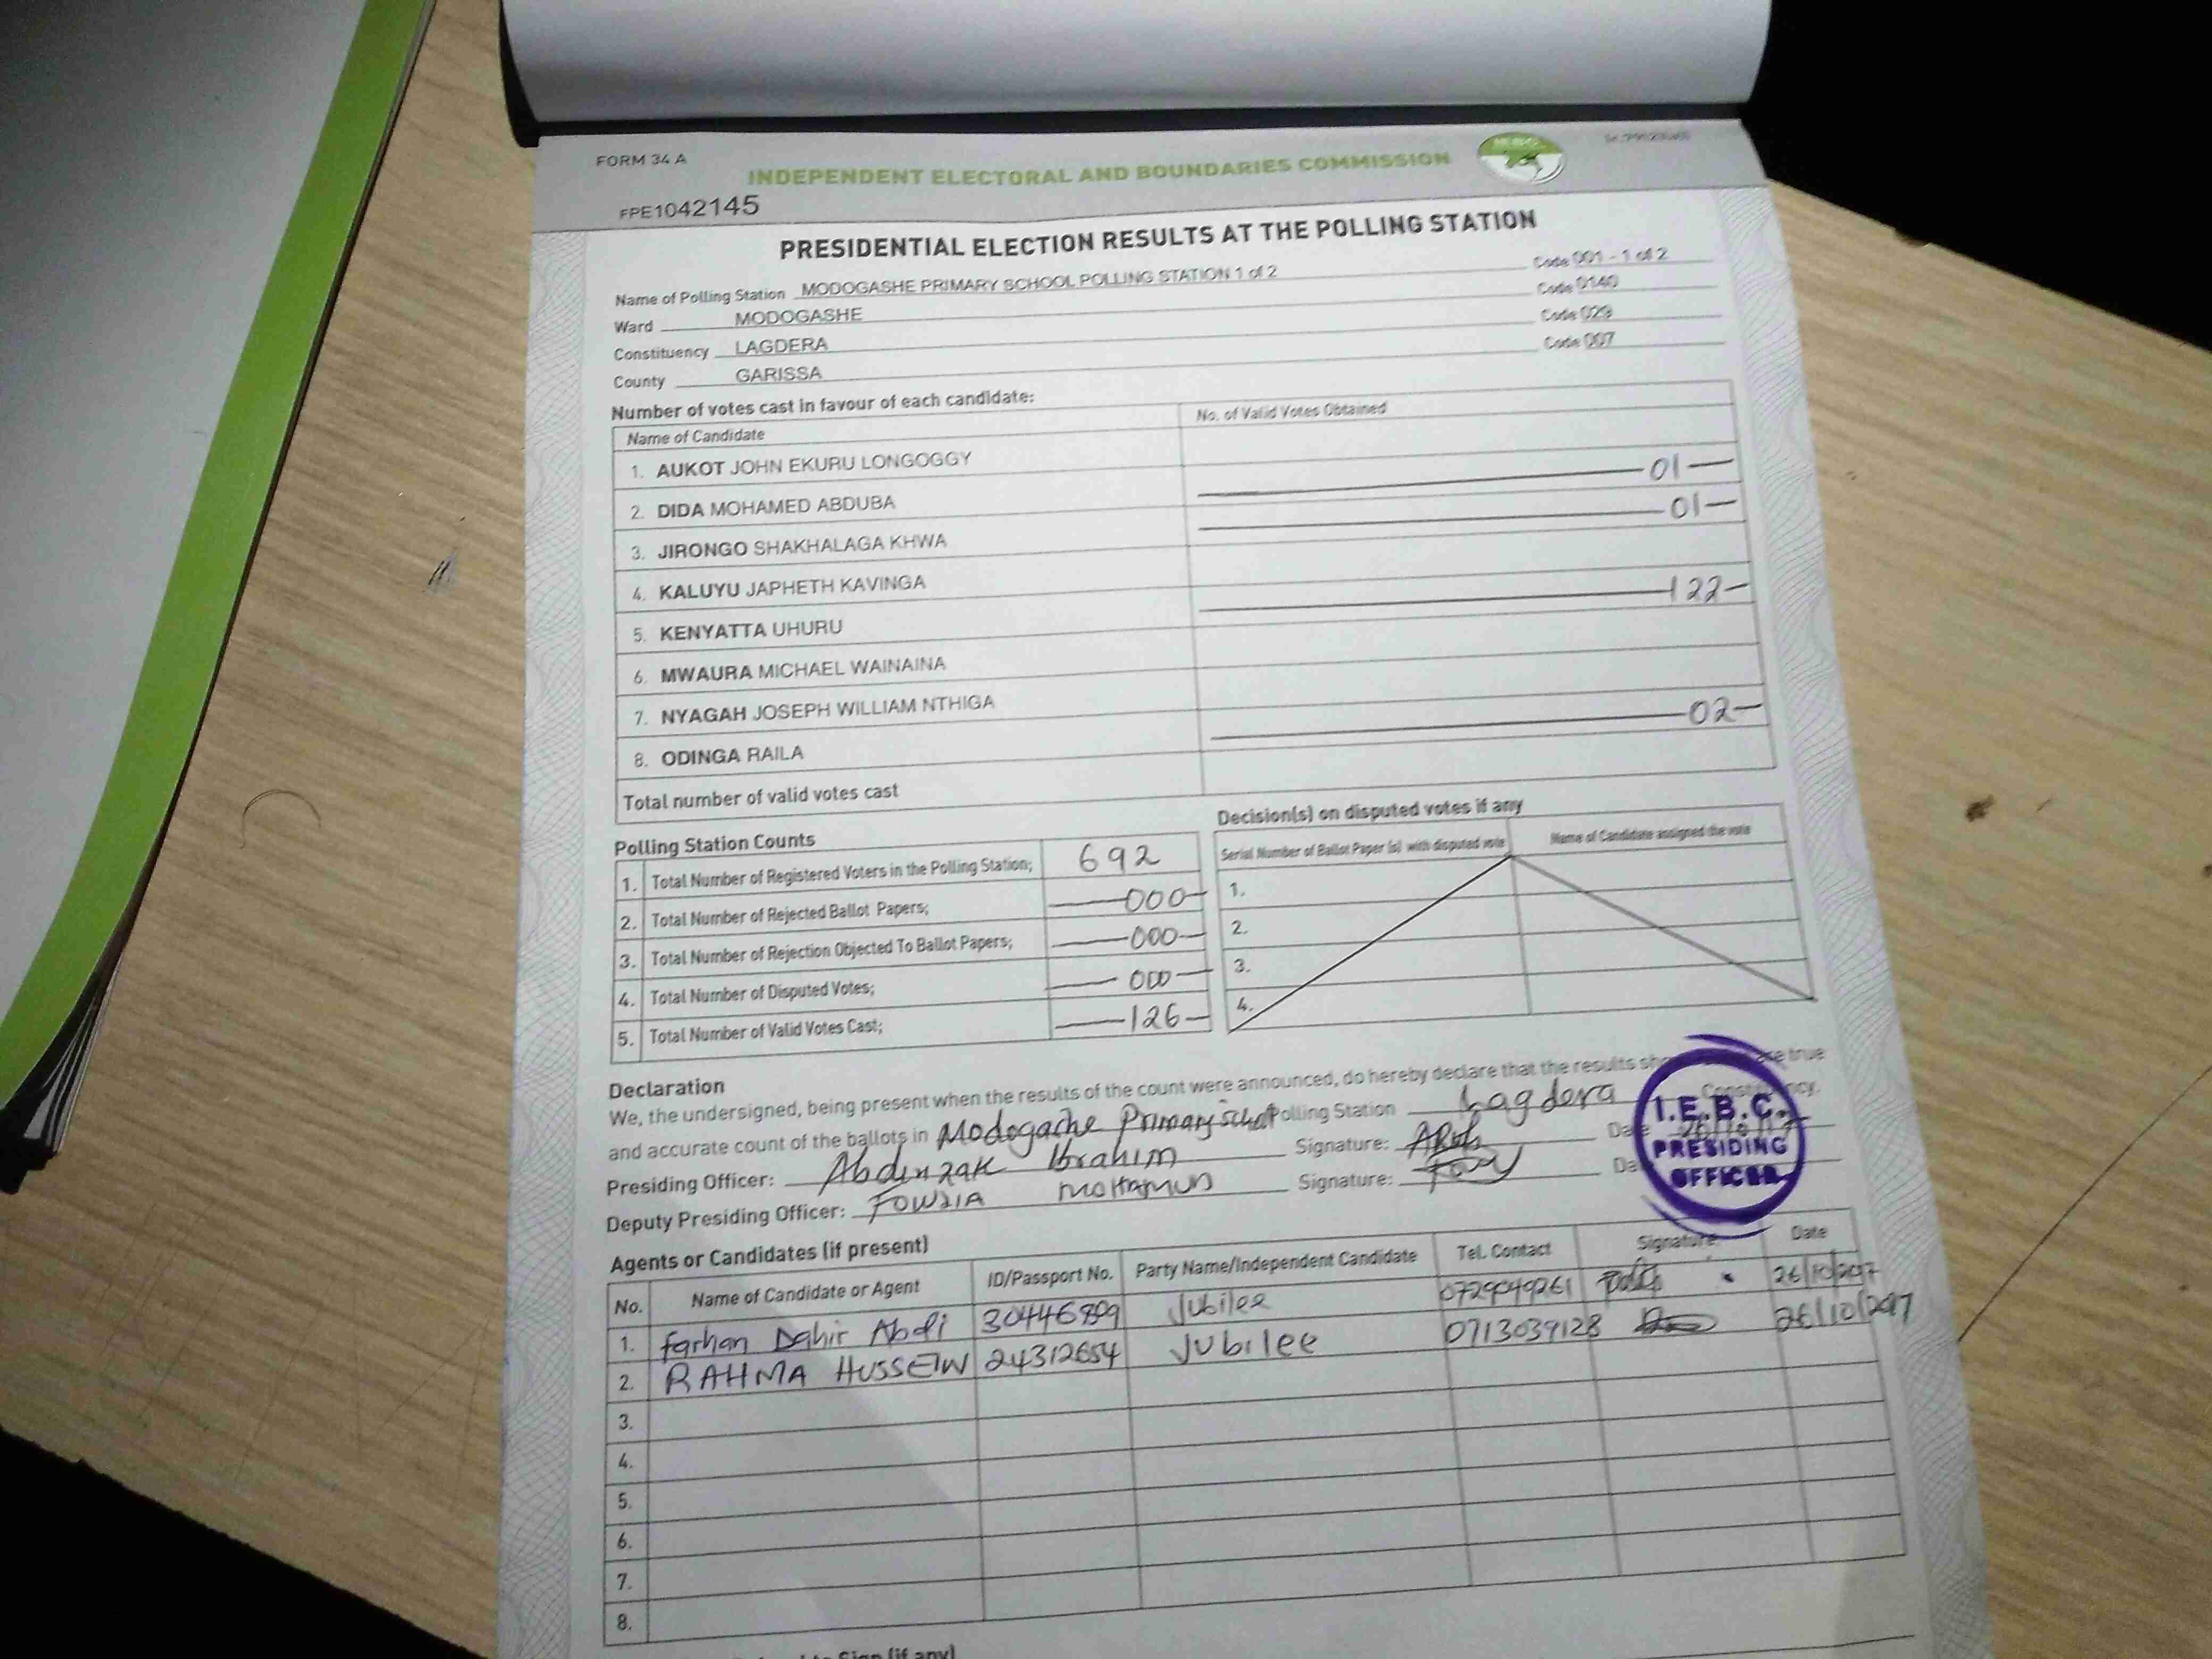 FORM 34 A
INDEPENDENT ELECTORAL AND BOUNDARIES COMMISSION
FPE1042145
PRESIDENTIAL ELECTION RESULTS AT THE POLLING STATION
Name of Polling Station MODOGASHE PRIMARY SCHOOL POLLING STATION 1 of 2 Code 001 - 1 of 2
Ward MODOGASHE Code 0140
Constituency LAGDERA Code 029
County GARISSA Code 007
Number of votes cast in favour of each candidate:
Name of Candidate No. of Valid Votes Obtained
1. AUKOT JOHN EKURU LONGOGGY 01
2. DIDA MOHAMED ABDUBA 01
3. JIRONGO SHAKHALAGA KHWA
4. KALUYU JAPHETH KAVINGA 122
5. KENYATTA UHURU
6. MWAURA MICHAEL WAINAINA
7. NYAGAH JOSEPH WILLIAM NTHIGA 02
8. ODINGA RAILA
Total number of valid votes cast
Polling Station Counts
1. Total Number of Registered Voters in the Polling Station; 692
2. Total Number of Rejected Ballot Papers; 000
3. Total Number of Rejection Objected To Ballot Papers; 000
4. Total Number of Disputed Votes; 000
5. Total Number of Valid Votes Cast; 126
Decision(s) on disputed votes if any
Serial Number of Ballot Paper (s) with disputed vote Name of Candidate assigned the vote
1.
2.
3.
4.
Declaration
We, the undersigned, being present when the results of the count were announced, do hereby declare that the results are true
and accurate count of the ballots in Modogashe Primary School Polling Station Lagdera Constituency.
Presiding Officer: Abdirizak Ibrahim Signature: Date
Deputy Presiding Officer: FOWSIA MOHAMUD Signature:
I.E.B.C.
PRESIDING
OFFICER
Agents or Candidates (if present)
No. Name of Candidate or Agent ID/Passport No. Party Name/Independent Candidate Tel. Contact Signature Date
1. Farhan Dahir Abdi Jubilee 0729049261 26/10/2017
2. RAHMA HUSSEIN 24312654 Jubilee 0713039128 26/10/2017
3.
4.
5.
6.
7.
8.